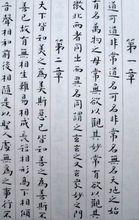 第一章
道可道非常道名可名非常名無名天地之始
有名萬物之母常無欲以觀其妙常有欲以觀其
徼此兩者同出而異名同謂之玄玄之又玄眾妙之門
第二章
天下皆知美之為美斯惡已皆知善之為善斯不
善已故有無相生難易相成長短相形高下相傾
音聲相和前後相隨是以聖人處無為之事行不